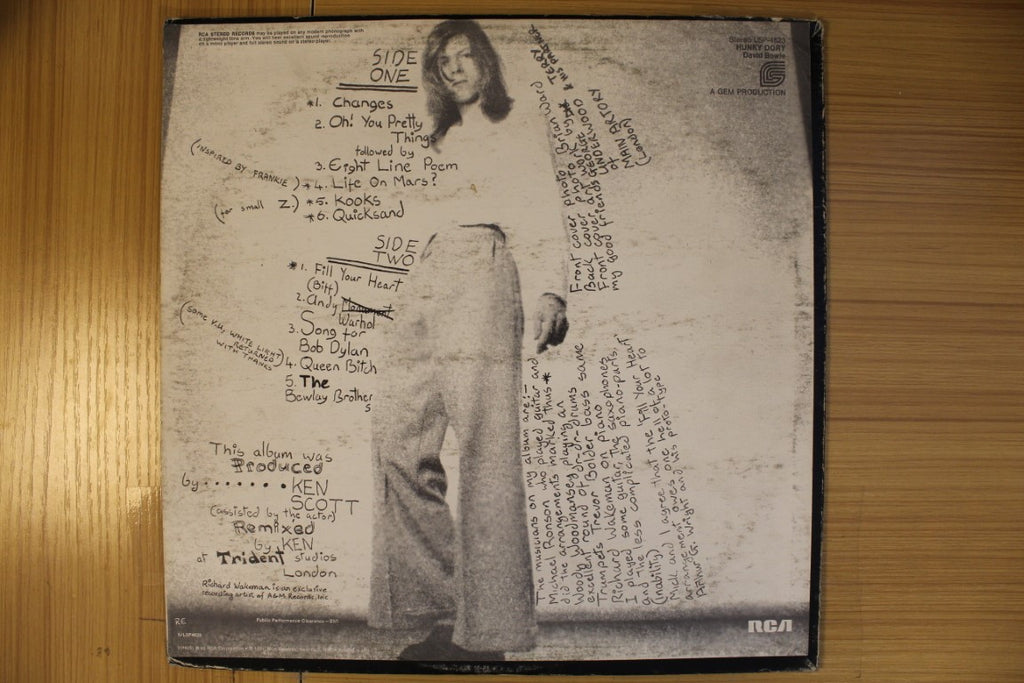 RCA STEREO RECORDS may be played on any modern phonograph with
a lightweight tone arm. You will hear excellent sound reproduction
on a mono player and full stereo sound on a stereo player.
Stereo LSP-4623
HUNKY DORY
David Bowie
A GEM PRODUCTION
SIDE
ONE
*1. Changes
2. Oh! You Pretty
Things
followed by
3. Eight Line Poem
(INSPIRED BY FRANKIE) *4. Life On Mars?
(for small Z.) *5. Kooks
*6. Quicksand
SIDE
TWO
*1. Fill Your Heart
(Biff)
2. Andy
Warhol
3. Song for
Bob Dylan
(Some V.U, WHITE LIGHT
RETURNED
WITH THANKS)
4. Queen Bitch
5. The
Bewlay Brother
s
This album was
Produced
by.......KEN
SCOTT
(assisted by the actor)
Remixed
by KEN
at Trident studios
London
Richard Wakeman is an exclusive
recording artist of A&M Records, Inc
Front cover photo by Brian Ward
Back cover photo
Front cover art work by TERRY
& his PASTOR
my good friends GEORGE UNDERWOOD
of
MAIN ARTORY
(London)
The musicians on my album are:-
Michael Ronson who played guitar and
did the arrangements marked thus *
Woody Woodmansey playing an
excellent round of dr-dr-drums
Trevor Bolder bass same
Trumpets
Richard Wakeman on piano
I played some guitar, the saxophones
and the less complicated piano-parts,
(inability)
Mick and I agree that the 'Fill Your Heart
arrangement owes one hell of a lot to
Arthur G. Wright and his proto-type
RE
Public Performance Clearance—BMI
RCA